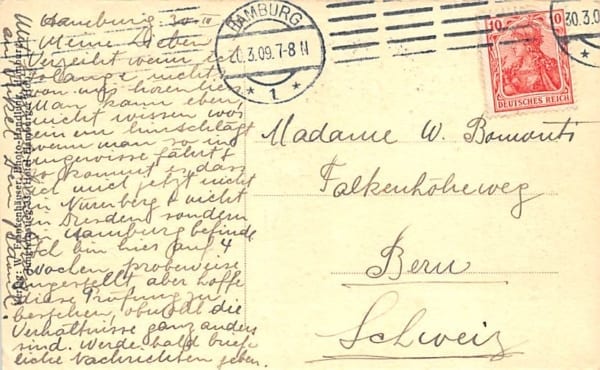 Hamburg 30 III
Meine Lieben
Verzeiht wenn ich
solange nichts
von uns hören liess
Man kann eben
nicht wissen wo's
einem einschlägt
wenn man so ins
ungewisse fährt
So kommt es dass
ich mich jetzt nicht
in Nürnberg & nicht
in Dresden sondern
in Hamburg befinde
Ich bin hier auf 4
Wochen probeweise
angestellt aber hoffe
diese Prüfung zu
bestehen, obwohl die
Verhältnisse ganz anders
sind. Werde bald brief-
liche Nachrichten geben.
HAMBURG
30.3.09.7-8 N
* 1 *
30.3.0
10 10
DEUTSCHES REICH
Madame W. Bomonti
Falkenhöheweg
Bern
Schweiz